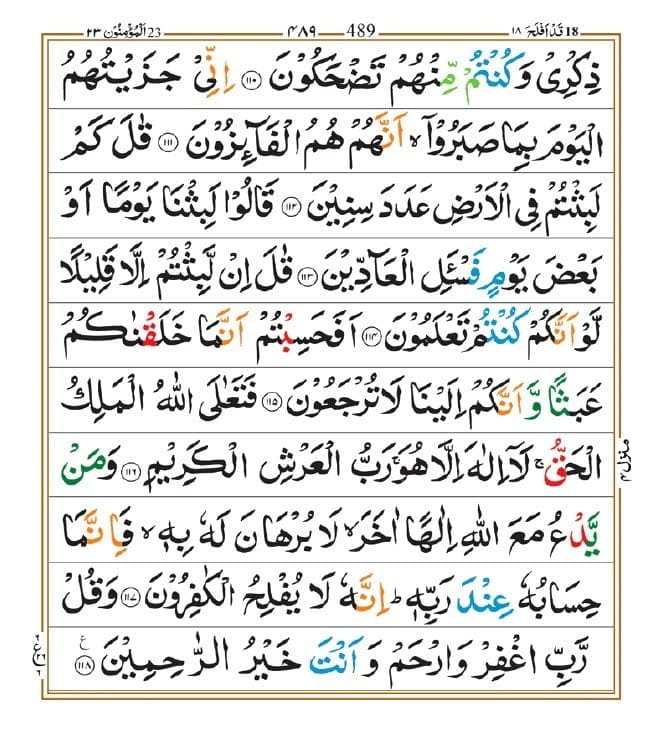 ١٨ قَدْ اَفْلَحَ 18 489 ٤٨٩ 23 اَلْمُؤْمِنُوْن ٢٣
ذِكْرِىْ وَكُنْتُمْ مِّنْهُمْ تَضْحَكُوْنَ ١١٠ اِنِّىْ جَزَيْتُهُمُ
الْيَوْمَ بِمَا صَبَرُوْٓا ۙ اَنَّهُمْ هُمُ الْفَآئِزُوْنَ ١١١ قٰلَ كَمْ
لَبِثْتُمْ فِى الْاَرْضِ عَدَدَ سِنِيْنَ ١١٢ قَالُوْا لَبِثْنَا يَوْمًا اَوْ
بَعْضَ يَوْمٍ فَسْئَلِ الْعَآدِّيْنَ ١١٣ قٰلَ اِنْ لَّبِثْتُمْ اِلَّا قَلِيْلًا
لَّوْ اَنَّكُمْ كُنْتُمْ تَعْلَمُوْنَ ١١٤ اَفَحَسِبْتُمْ اَنَّمَا خَلَقْنٰكُمْ
عَبَثًا وَّاَنَّكُمْ اِلَيْنَا لَا تُرْجَعُوْنَ ١١٥ فَتَعٰلَى اللّٰهُ الْمَلِكُ
الْحَقُّ ۚ لَآ اِلٰهَ اِلَّا هُوَ ۚ رَبُّ الْعَرْشِ الْكَرِيْمِ ١١٦ وَمَنْ
يَّدْعُ مَعَ اللّٰهِ اِلٰهًا اٰخَرَ ۙ لَا بُرْهَانَ لَهٗ بِهٖ ۙ فَاِنَّمَا
حِسَابُهٗ عِنْدَ رَبِّهٖ ؕ اِنَّهٗ لَا يُفْلِحُ الْكٰفِرُوْنَ ١١٧ وَقُلْ
رَّبِّ اغْفِرْ وَارْحَمْ وَاَنْتَ خَيْرُ الرّٰحِمِيْنَ ١١٨ ع
منزل ٤